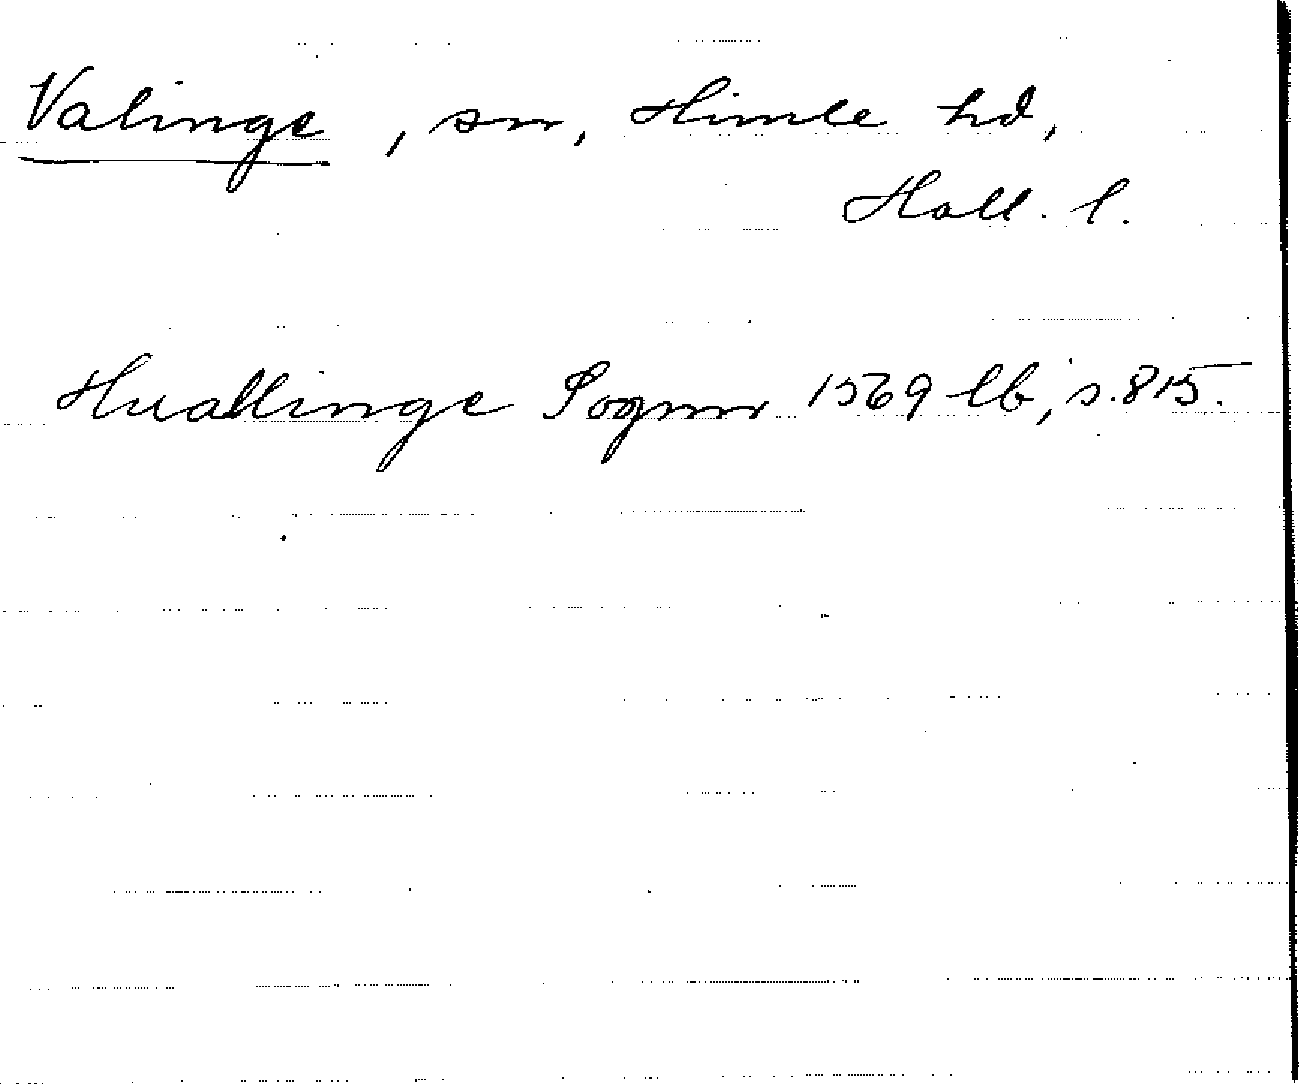 Valinge, sn, Himle hd,
Hall. l.
Huallinge Sognn 1569 lb, s. 815.